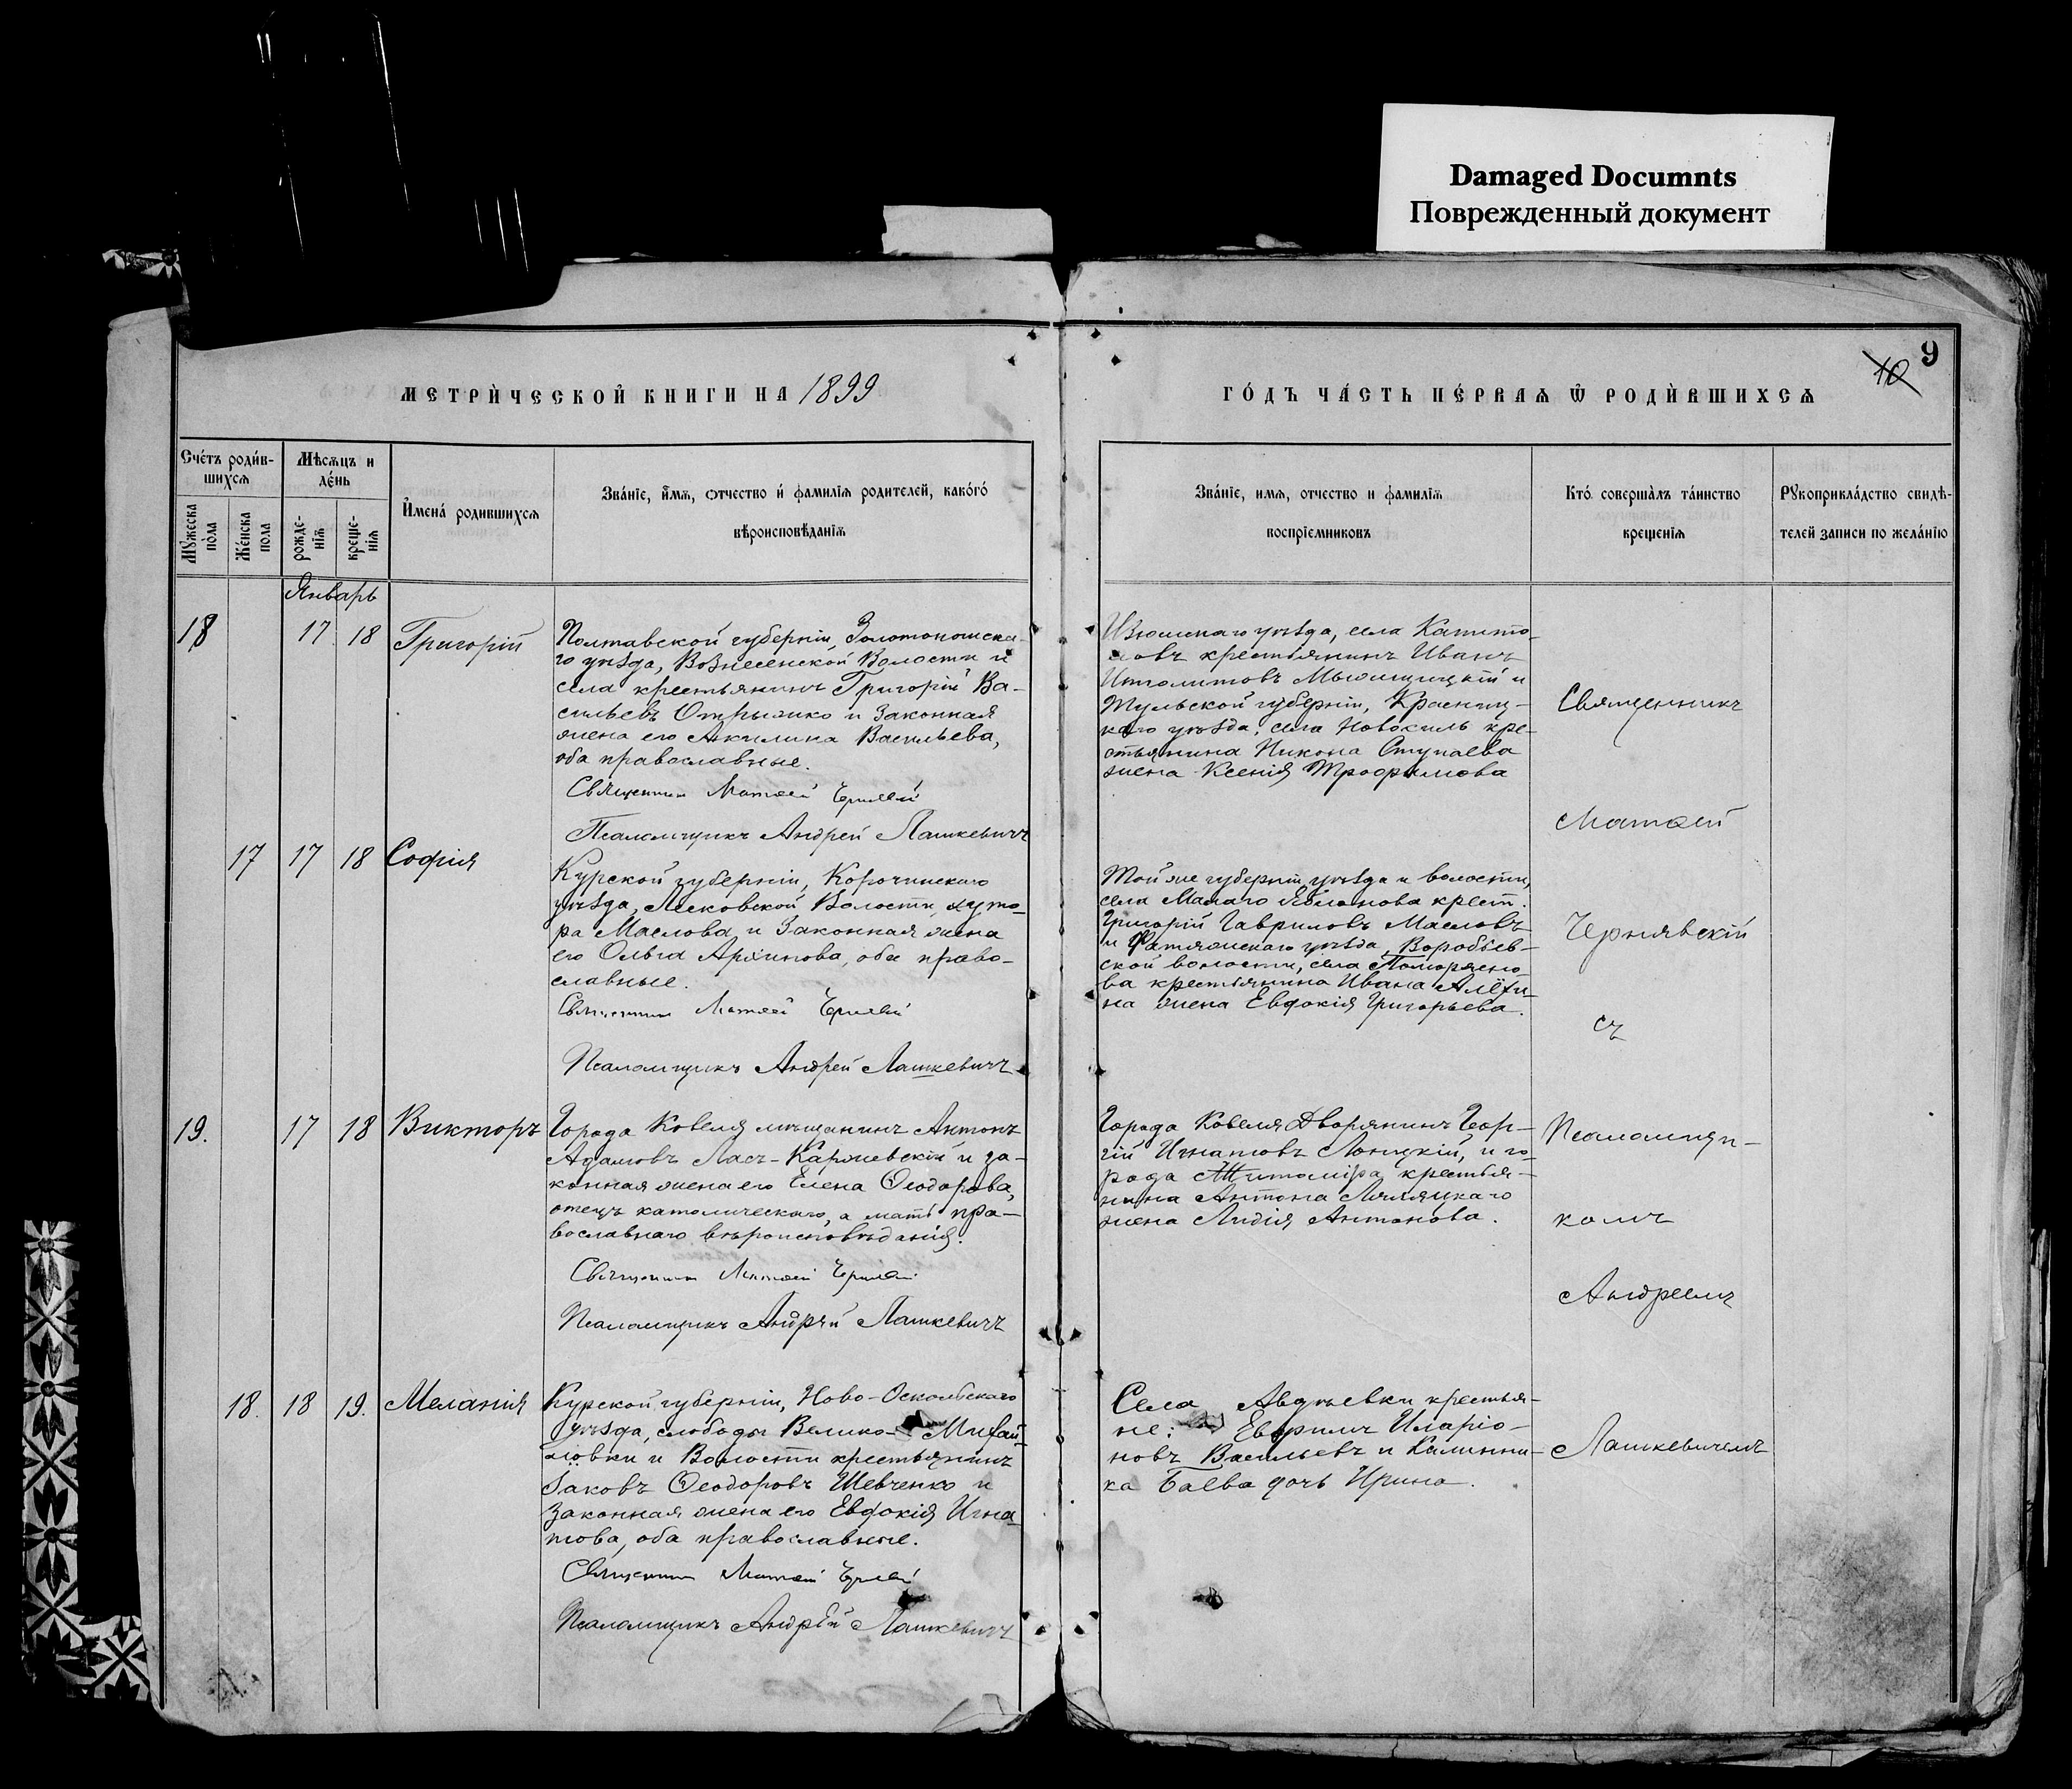 Damaged Documnts
Поврежденный документ
9
10
МЕТРИ́ЧЕСКОЙ КНИГИ НА 1899
ГО́ДЪ ЧА́СТЬ ПЕ́РВАѦ Ѿ РОДИ́ВШИХСѦ
Сче́тъ роди́в-
шихсѧ
Мѣсѧцъ и
де́нь
Мꙋ́жеска
по́ла
Же́нска
пола
рожде-
нїѧ
креще-
нїѧ
И҆мена́ родившихсѧ
Зва́нїе, и҆́мѧ, отчество и́ фамилїѧ родителей, како́гѡ́
вѣроисповѣданїѧ
Зва́нїе, имѧ, отчество и фамилїѧ
воспрїемниковъ
Кто́ соверша́лъ та́инство
крещенїѧ
Рꙋкоприкла́дство свидѣ-
телей записи по жела́нїю
Январь
18 17 18 Григорій
Полтавской губерніи, Золотоношска-
го уѣзда, Вознесенской Волости и
села крестьянинъ Григорій Ва-
сильевъ и Законная
жена его Акилина Васильева,
оба православные.
Священникъ Матѳей
Псаломщикъ Андрей Лашкевичъ
Изюмскаго уѣзда, села Капито-
ловъ крестьянинъ Иванъ
Ипполитовъ и
Тульской губерніи,
каго уѣзда, села Новосиль кре-
стьянина Никона Ступаева
жена Ксенія Трофимова
17 17 18 Софія
Курской губерніи, Корочинскаго
уѣзда, Волости, хуто-
ра Маслова и Законная жена
его Ольга Архипова, оба право-
славные.
Священникъ Матѳей
Псаломщикъ Андрей Лашкевичъ
Той же губерніи, уѣзда и волости,
села Малаго крест.
Григорій Гавриловъ Масловъ
и Фатежскаго уѣзда, Воробьев-
ской волости, села
ва крестьянина Ивана Алёхи-
на жена Евдокія Григорьева.
19. 17 18 Викторъ
Города Ковеля мѣщанинъ Антонъ
Адамовъ Ласъ-Каржевскій и за-
конная жена его Елена Ѳеодорова,
отецъ католическаго, а мать пра-
вославнаго вѣроисповѣданія.
Священникъ Матѳей
Псаломщикъ Андрей Лашкевичъ
Города Ковеля Дворянинъ Геор-
гій Игнатовъ и го-
рода Житоміра, крестья-
нина Антона
жена Лидія Антонова.
18. 18 19. Меланія
Курской губерніи, Ново-Оскольскаго
уѣзда, слободы Велико-Михай-
ловки и Волости крестьянинъ
Іаковъ Ѳеодоровъ Шевченко и
Законная жена его Евдокія Игна-
това, оба православные.
Священникъ Матѳей
Псаломщикъ Андрей Лашкевичъ
Села Авдѣевки крестья-
не: Евфимъ Иларіо-
новъ Васильевъ и Калинни-
ка Баева дочь Ирина.
Священникъ
Матѳей
Чернявскій
съ
Псаломщи-
комъ
Андреемъ
Лашкевичемъ